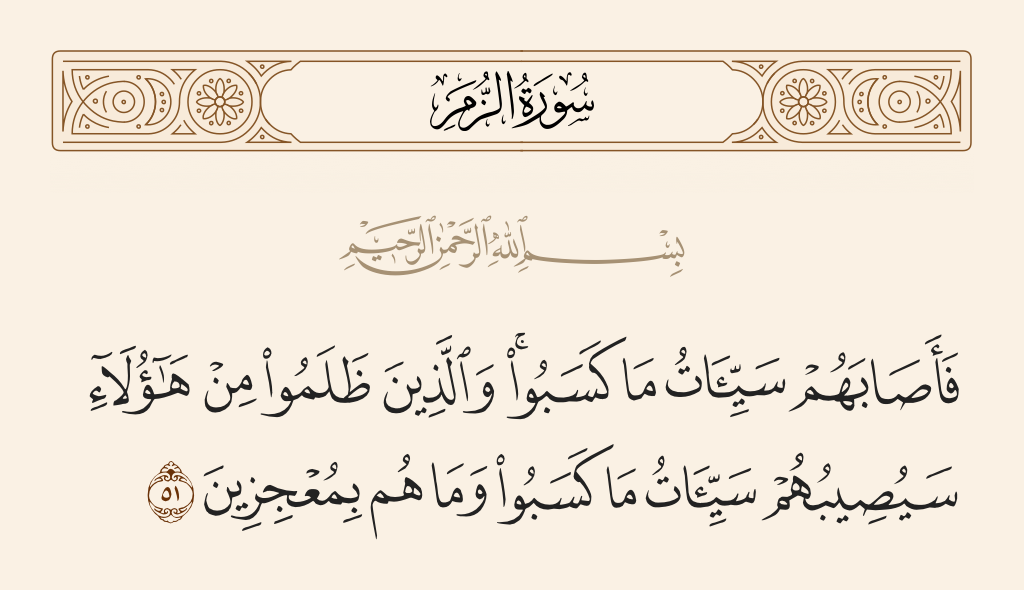 سُورَةُ الزُّمَرِ
بِسْمِ ٱللَّهِ ٱلرَّحْمَٰنِ ٱلرَّحِيمِ
فَأَصَابَهُمْ سَيِّـَٔاتُ مَا كَسَبُوا۟ ۚ وَٱلَّذِينَ ظَلَمُوا۟ مِنْ هَـٰٓؤُلَآءِ
سَيُصِيبُهُمْ سَيِّـَٔاتُ مَا كَسَبُوا۟ وَمَا هُم بِمُعْجِزِينَ ٥١